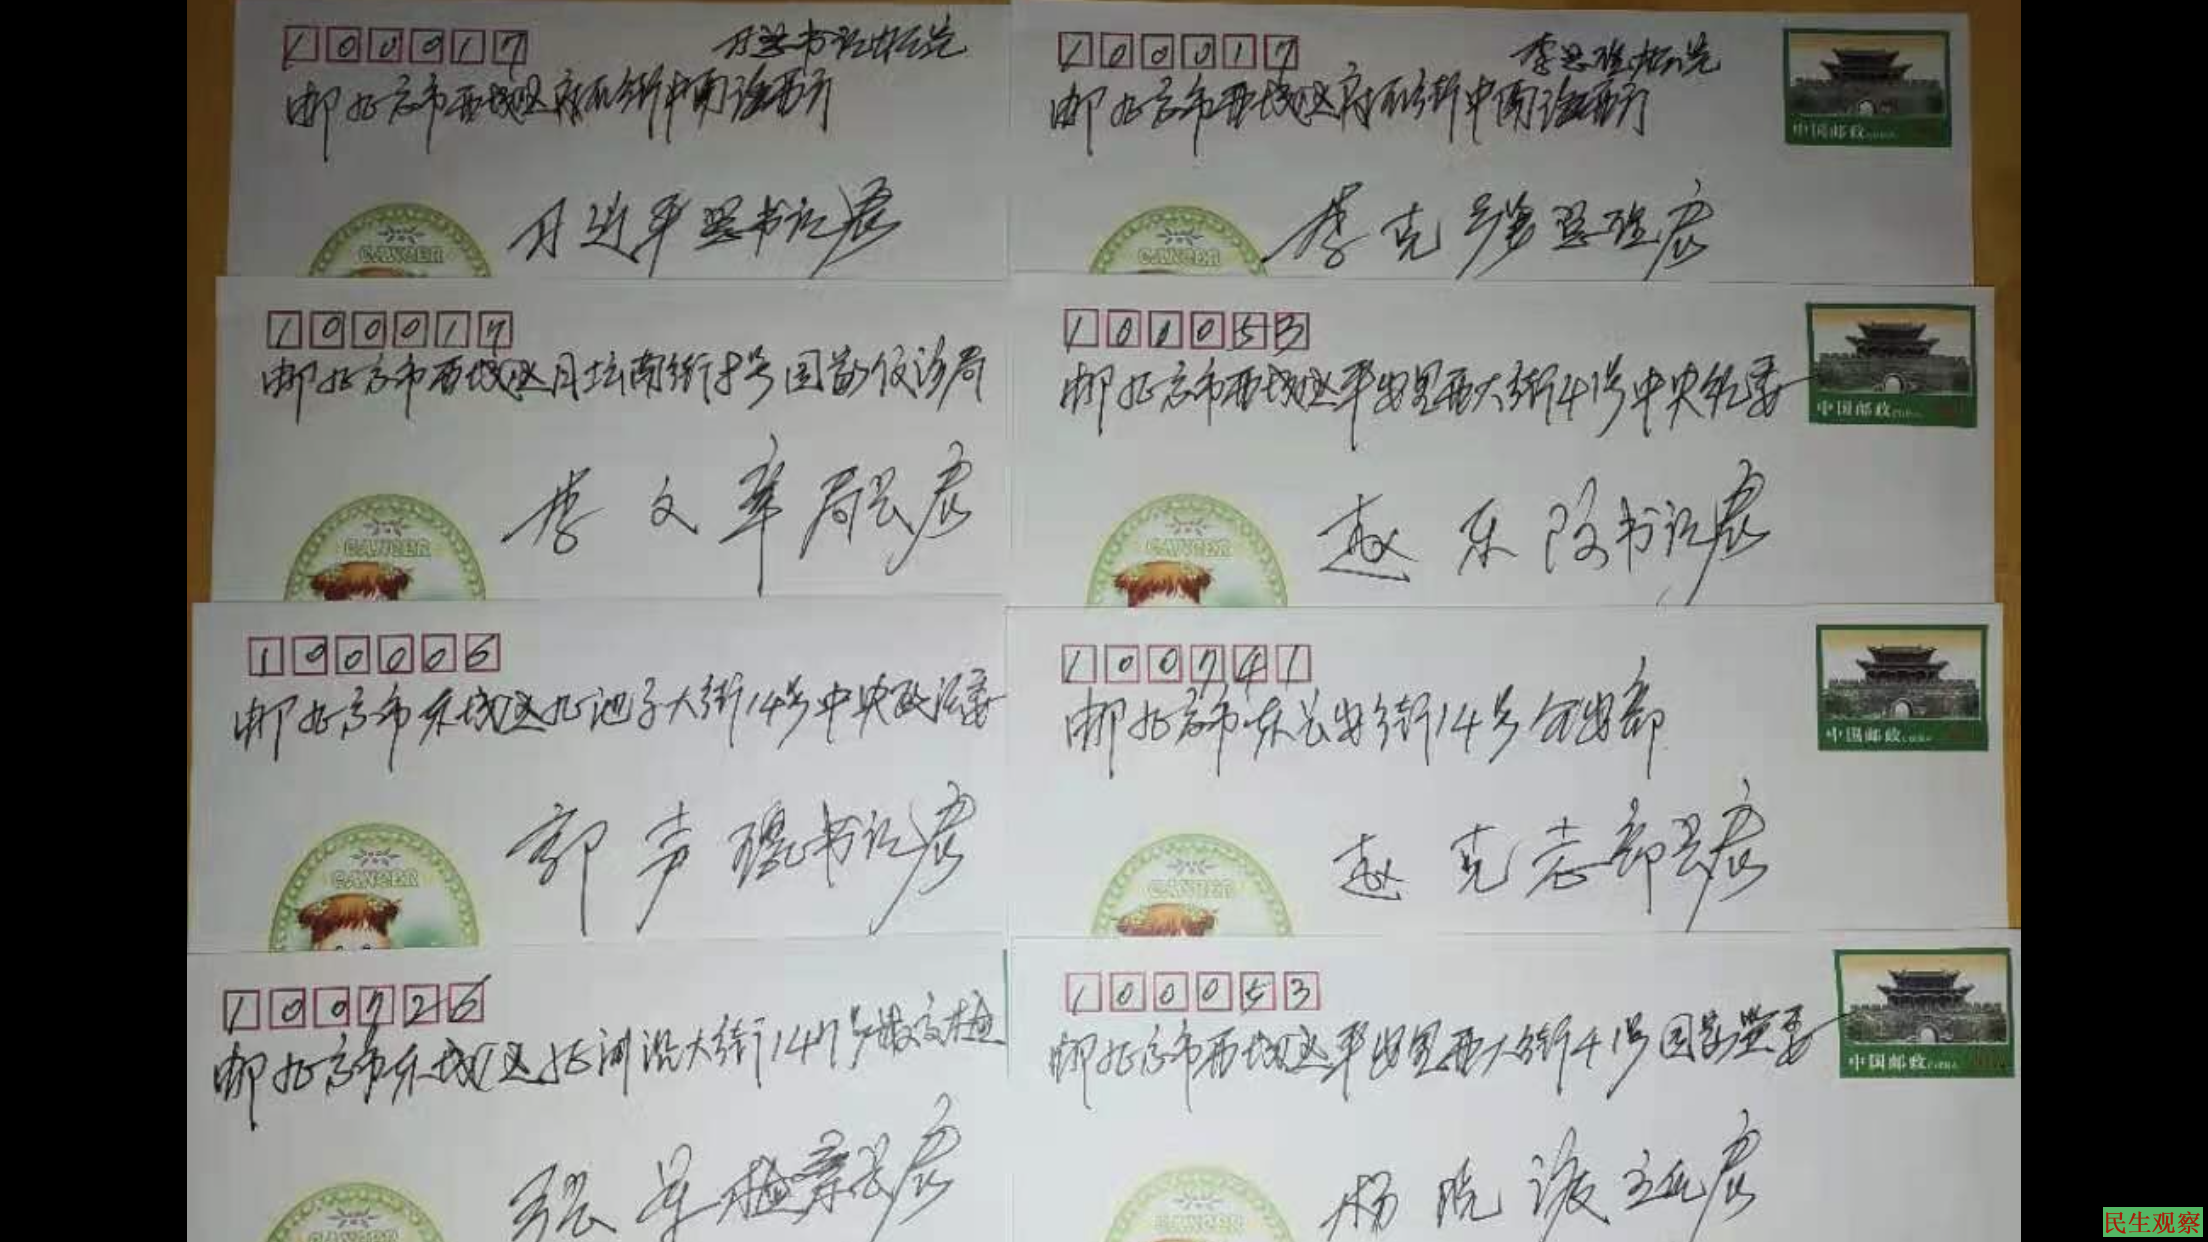 100017
习总书记标兰
邮北京市西城区府右街中南海西门
习近平总书记启
CANCER
100017
李总理标兰
邮北京市西城区府右街中南海西门
中国邮政
李克强总理启
CANCER
100017
邮北京市西城区月坛南街8号国家信访局
李文章局长启
CANCER
100053
邮北京市西城区平安里西大街41号中央纪委
中国邮政
赵乐际书记启
CANCER
100006
邮北京市东城区北池子大街14号中央政法委
郭声琨书记启
CANCER
100741
邮北京市东长安街14号公安部
中国邮政
赵克志部长启
CANCER
100726
邮北京市东城区北河沿大街147号最高检
张军检察长启
CANCER
100053
邮北京市西城区平安里西大街41号国家监委
中国邮政
杨晓渡主任启
CANCER
民生观察